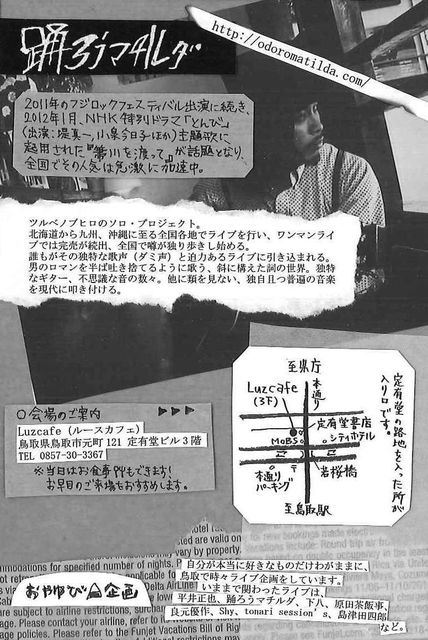 踊ろうマチルダ
http://odoromatilda.com/
2011年のフジロックフェスティバル出演に続き、
2012年1月、NHK特別ドラマ「とんび」
(出演:堤真一、小泉今日子ほか)主題歌に
起用された『箒川を渡って』が話題となり、
全国でその人気は急激に加速中。
ツルベノブヒロのソロ・プロジェクト。
北海道から九州、沖縄に至る全国各地でライブを行い、ワンマンライ
ブでは完売が続出、全国で噂が独り歩きし始める。
誰もがその独特な歌声(ダミ声)と迫力あるライブに引き込まれる。
男のロマンを半ば吐き捨てるように歌う、斜に構えた詞の世界。独特
なギター、不思議な音の数々。他に類を見ない、独自且つ普遍の音楽
を現代に叩き付ける。
○会場のご案内
Luzcafe (ルースカフェ)
鳥取県鳥取市元町 121 定有堂ビル 3 階
TEL 0857-30-3367
※当日はお食事もできます!
お早目のご来場をおすすめします。
至県庁
本通り
Luzcafe
(3F)
定有堂書店
MOBS
シティホテル
本通り
パーキング
〒
若桜橋
至鳥取駅
定有堂の路地を入った所が
入り口です。
おやゆび企画
自分が本当に好きなものだけわがままに、
鳥取で時々ライブ企画をしています。
いままで関わったライブは、
平井正也、踊ろうマチルダ、下八、原田茶飯事、
良元優作、Shy、tomari session's 、島津田四郎
など。